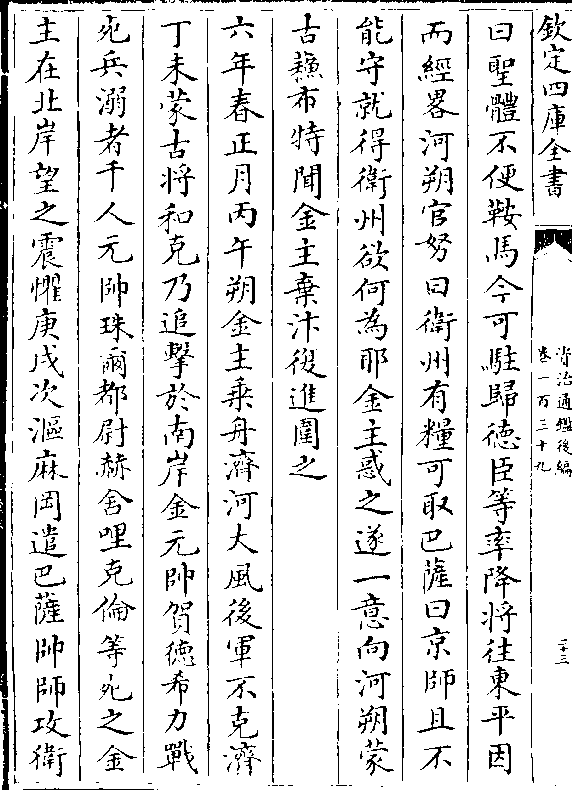 欽定四庫全書
資治通鑑後編
卷一百三十九
二十三
曰聖體不便鞍馬今可駐歸德臣等率降將往東平因
而經畧河朔官努曰衛州有糧可取巴薩曰京師且不
能守就得衛州欲何為耶金主惑之遂一意向河朔蒙
古蘓布特聞金主棄汴復進圍之
六年春正月丙午朔金主乘舟濟河大風後軍不克濟
丁未蒙古將和克乃追擊於南岸金元帥賀德希力戰
死兵溺者千人元帥珠爾都尉赫舍哩克倫等死之金
主在北岸望之震懼庚戌次漚麻岡遣巴薩帥師攻衛